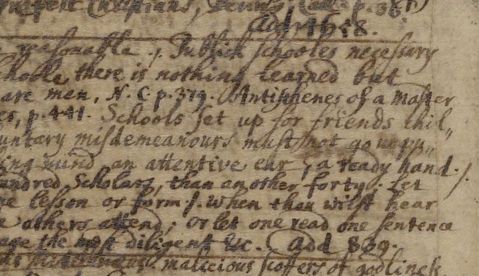 Christians,
add 1618.
reasonable ./ Publick schooles necessary
schoole there is nothing learned but
are men, N. C p. 319. Antisthenes of a Master
p. 441. Schools set up for friends chil„
untary misdemeanours must not go unpu„
mind an attentive ear, a ready hand. /.
undred Scholars, than another forty. Let
lesson or form /. When thou wilt hear
others attend; or let one read one sentence
the most diligent &c. add 839.
malicious scoffers of godliness